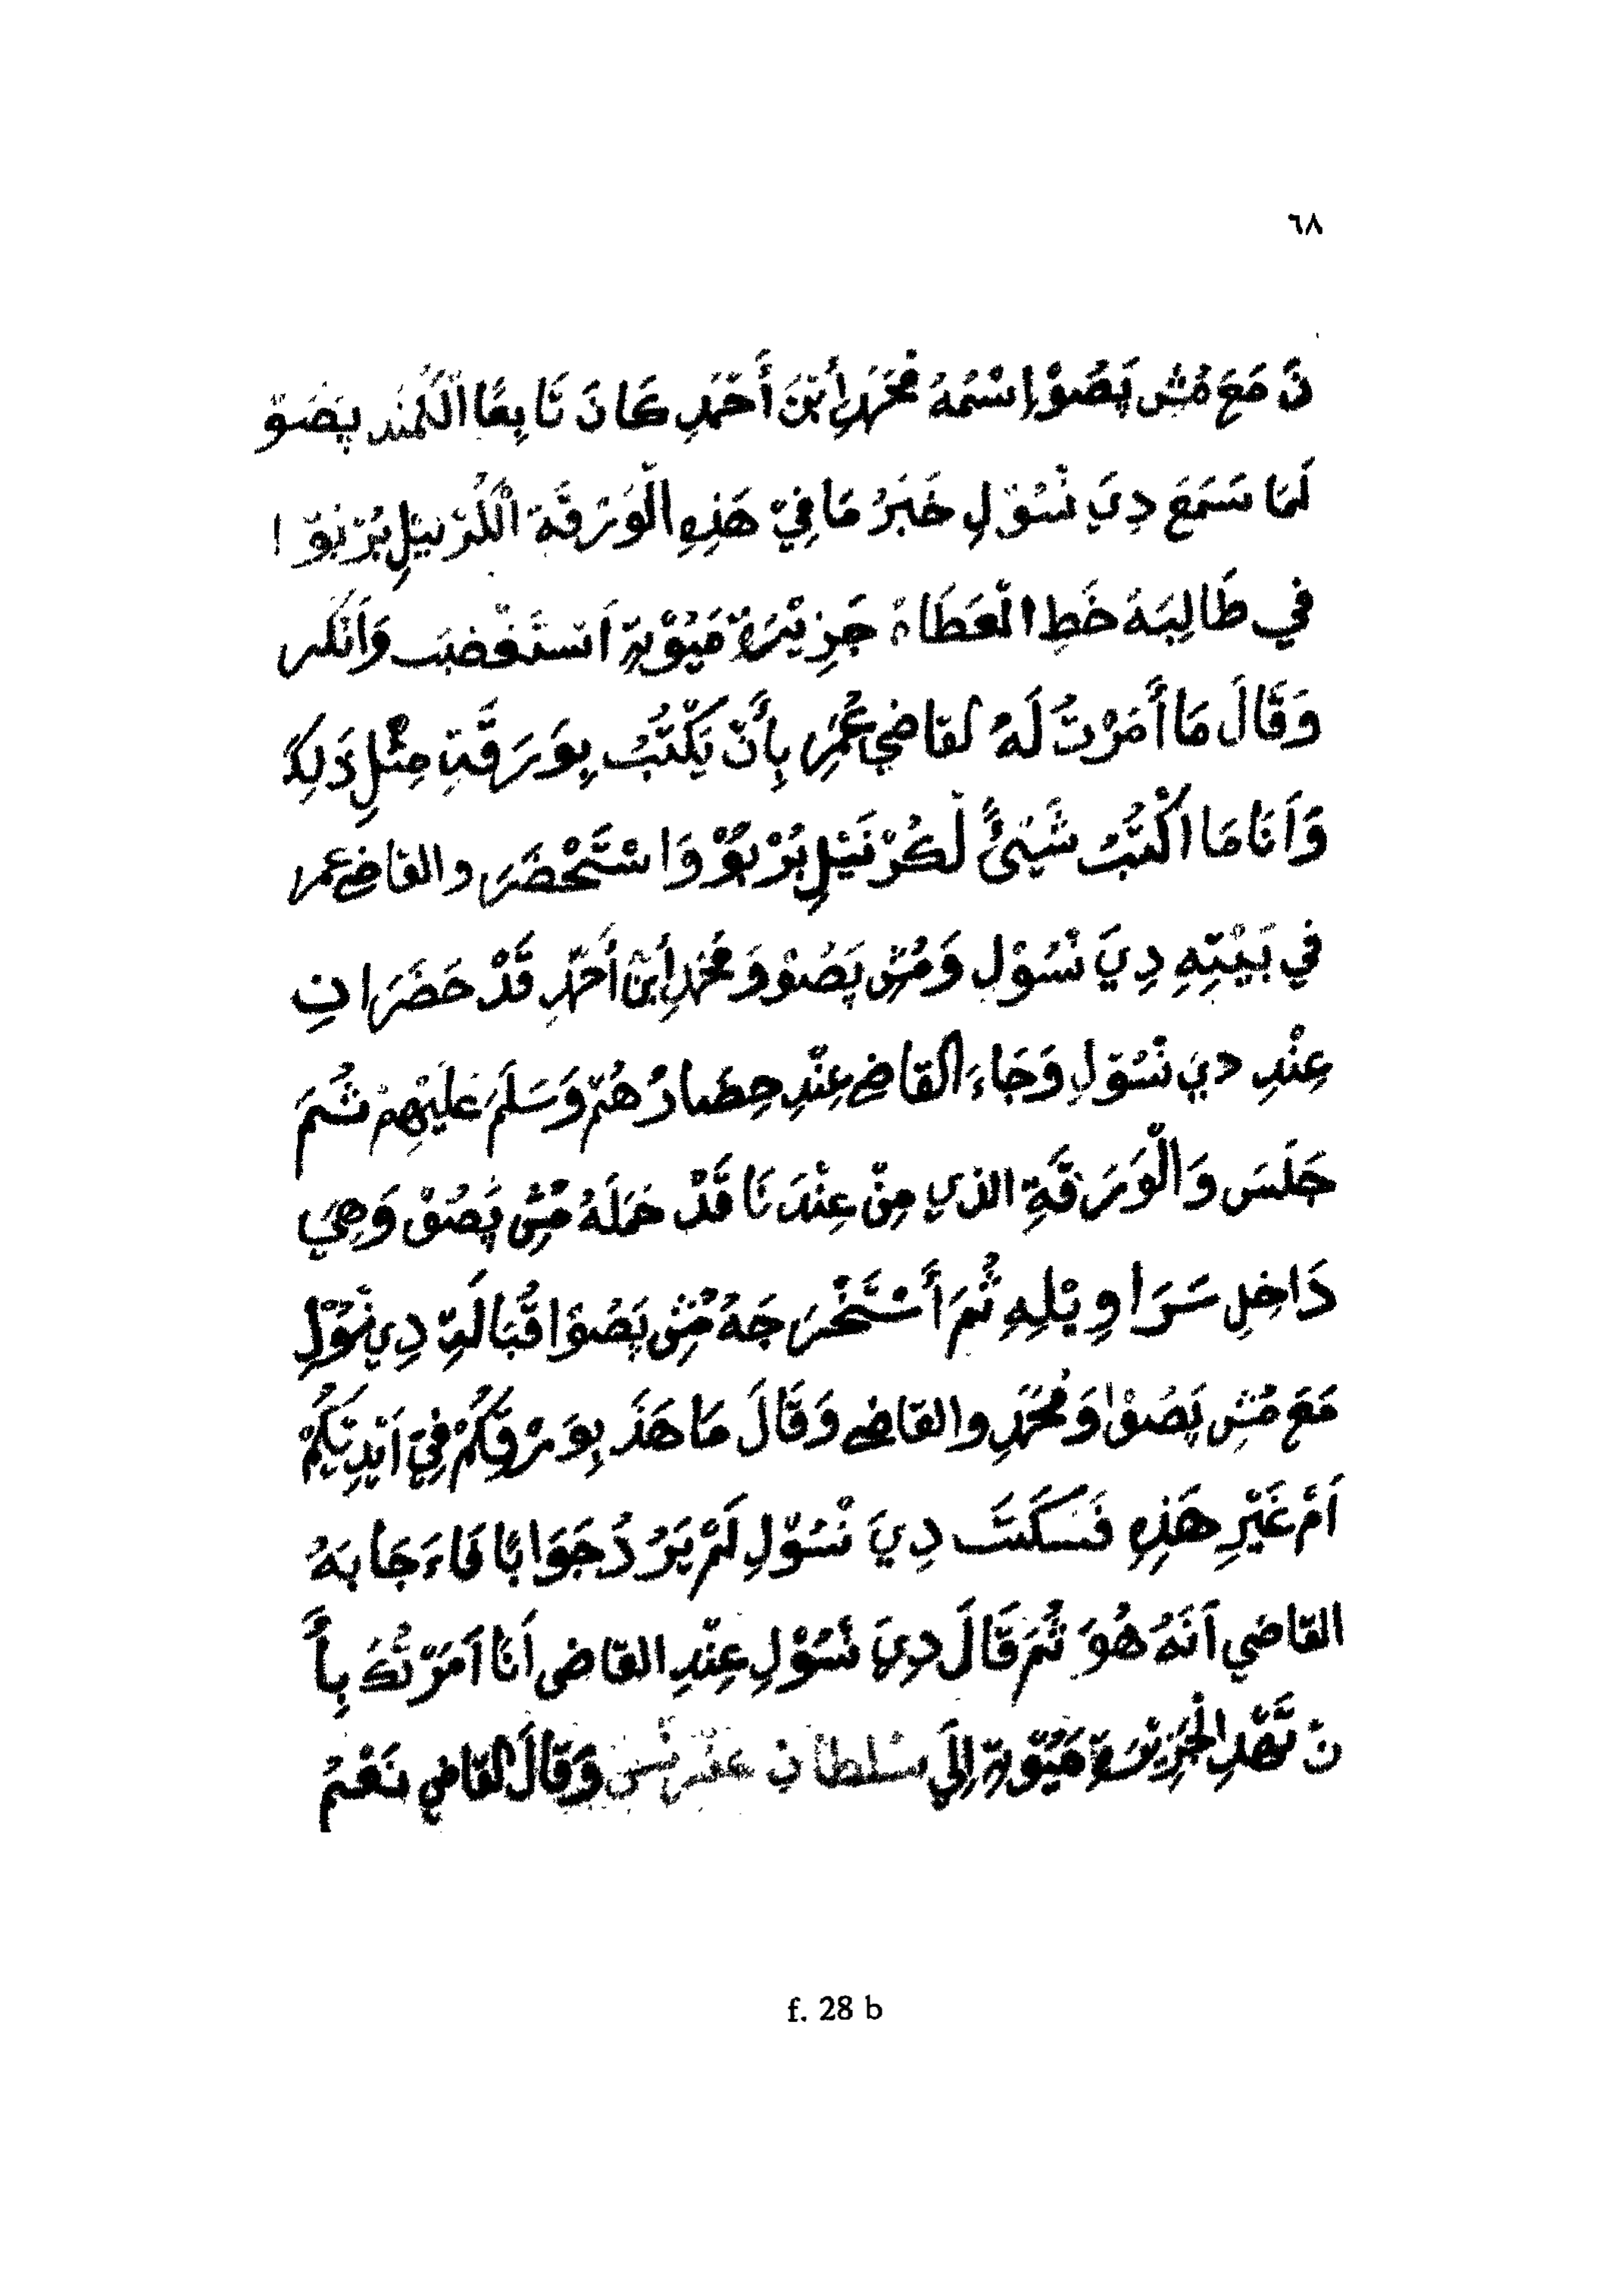 ٦٨
نَ مَعَ مُشِ پَصُوْ إِسْمُهُ مُحَمَّدِ أِبْنَ أَحْمَدِ كَانَ تَابِعًا الْكُمَنْدِ پَصَوْ
لَمَا سَمَعَ دِيَ نْسُوْلِ خَبَرُ مَا فِيْ هَذِهِ الْوَرَقَةَ الْكُرْنَيْلِ بُرْبَوْا
في طَالِبَهُ خَطِ الْعَطَاءُ جَزِيْرَةْ مَيُوْتِةِ اَسْتَغْضَبَ وَاَنْكَر
وَقَالَ مَا أَمَرْتُ لَهُ لقاضِي عُمَرِ بِأَنْ يَكْتُبُ بِوَرَقَةِ مِثْلِ ذَلِكَ
وَاَنَا مَا اكْتُبُ شَيْئً لَكُرْنَيْلِ بُرْبَوْ وَاسْتَحْضَرَ والقاضي عمر
في بَيْتِهِ دِيَ نْسُوْلِ وَمُشِ پَصُوْ وَمُحَمَّدِ إِبْنُ أَحْمَدِ قَدْ حَضَرَانِ
عِنْدِ دي نْسُوْلِ وَجَاءَ القاضي عِنْدِ حِضَارُهُمْ وَسَلَمَ عَلَيْهِمْ ثُمَ
جَلَسَ وَالْوَرَقَةِ الذي مِنْ عِنْدَنَا قَدْ حَمَلَهُ مُشِ پَصُوْ وَهِيَ
دَاخِلِ سَرَاوِيْلِهِ ثُمَ أَسْتَخْرَجَهُ مُشِ پَصُوْا قُبَالَةِ دِي نْسُوْلِ
مَعَ مُشِ پَصُوْا وَمُحَمَّدِ والقاضي وَقَالَ مَا هَذَ بِوَرْقَكُمْ فِيْ اَيْدِيْكُمْ
اَمْ غَيْرِ هَذِهِ فَسَكَتَ دِيَ نْسُوْلِ لَمْ يَرُدُ جَوَابًا فَاءَجَابَهُ
القاضي اَنَهُ هُوَ ثُمَ قَالَ دِيَ نْسُوْلِ عِنْدِ القاضي اَنَا اَمَرْتُكَ بِأَ
نْ تَهْدِ الْجَزِيْرَةِ مَيُوْتِةِ إِلَي سُلطانِ وَقَالَ القاضي نَعَمْ
f. 28 b